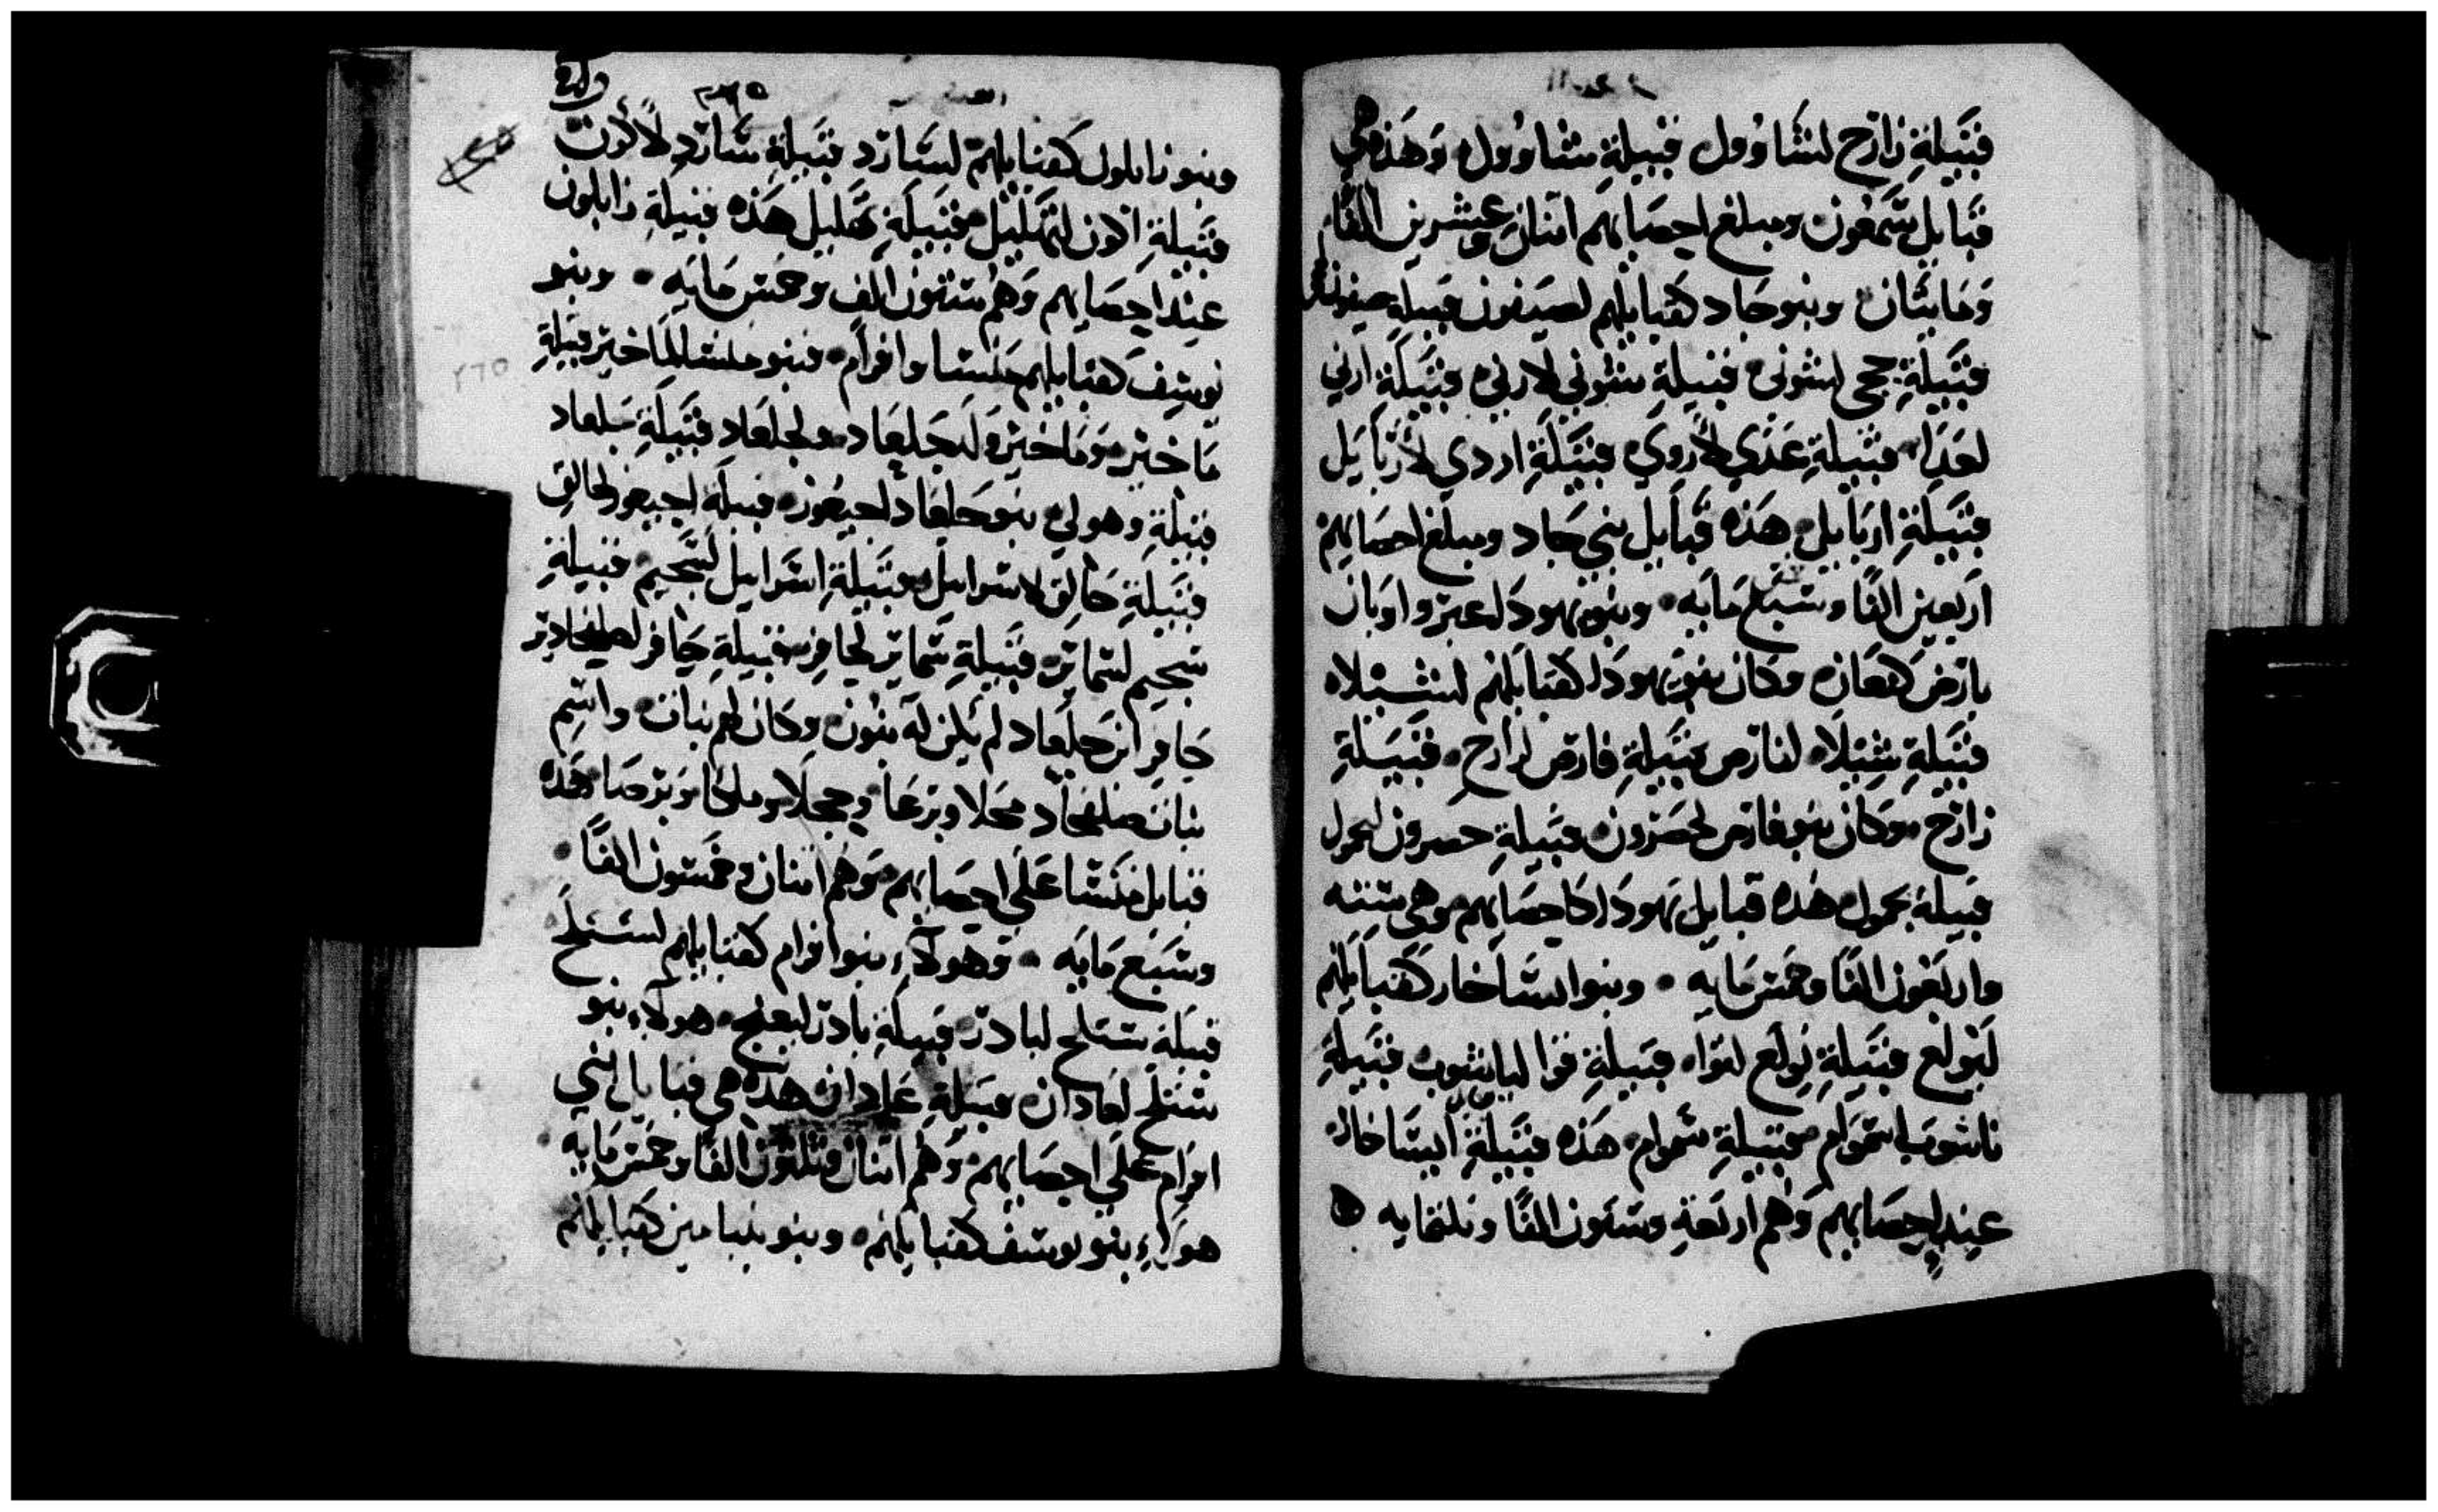 قبيلة زارح لشاوول قبيلة شاوول وهذه هي
قبايل شمعون ومبلغ احصايهم اتنان وعشرين الفا
ومايتان وبنو جاد كقبايلهم لصيفون قبيلة صيفون
قبيلة حجي لشوني قبيلة شوني لارني قبيلة ارني
لعدا قبيلة عدي لاروي قبيلة اردي لاربايل
قبيلة اربايل هذه قبايل بني جاد ومبلغ احصايهم
اربعين الفا وسبع مايه وبنو يهودا عير واوبان
بارض كنعان وكان بنو يهودا كقبايلهم لشيلاه
قبيلة شيلا لفارص قبيلة فارص لزارح قبيلة
زارح وكان بنو فارص لحصرون قبيلة حصرون لحمول
قبيلة حمول هذه قبايل يهودا كاحصايهم وهي سته
واربعون الفا وخمس مايه وبنو ايساخار كقبايلهم
لتولع قبيلة تولع لفوا قبيلة فوا لياشوب قبيلة
ياشوب لشموام قبيلة شموام هذه قبيلة ايساخار
عند احصايهم وهم اربعة وستون الفا وتلتمايه
وبنو زابلون كقبايلهم لسارد قبيلة سارد لالون
قبيلة الون لتهليل قبيلة تهليل هذه قبيلة زابلون
عند احصايهم وهم ستون الف وخمس مايه وبنو
يوسف كقبايلهم منسا وافرام فبنو منسا لماخير قبيلة
ماخير وماخير ولد جلعاد ولجلعاد قبيلة جلعاد
قبيلة وهولي بنو جلعاد لجيعزر قبيلة اجيعزر لحالق
قبيلة حالق لاسراييل قبيلة اسراييل لسجيم قبيلة
سجيم لشماير قبيلة شماير لحافر قبيلة حافر لصلفحاد بن
حافر ابن جلعاد لم يكن له بنون وكان لهم بنات واسم
بنات صلفحاد محلا وبرعا وحجلا وملكا وترصا هذه
قبايل منسا علي احصايهم وهم اتنان وخمسون الفا
وسبع مايه وهولاء بنو افرام كقبايلهم لستلح
قبيلة ستلح لبادر قبيلة بادر لبعنج هولاء بنو
ستلح لعادان قبيلة عادان هذه هي قبايل بني
افرام علي احصايهم وهم اتنان وتلتون الفا وخمس مايه
هولاء بنو يوسف كقبايلهم وبنو بنيامين كقبايلهم